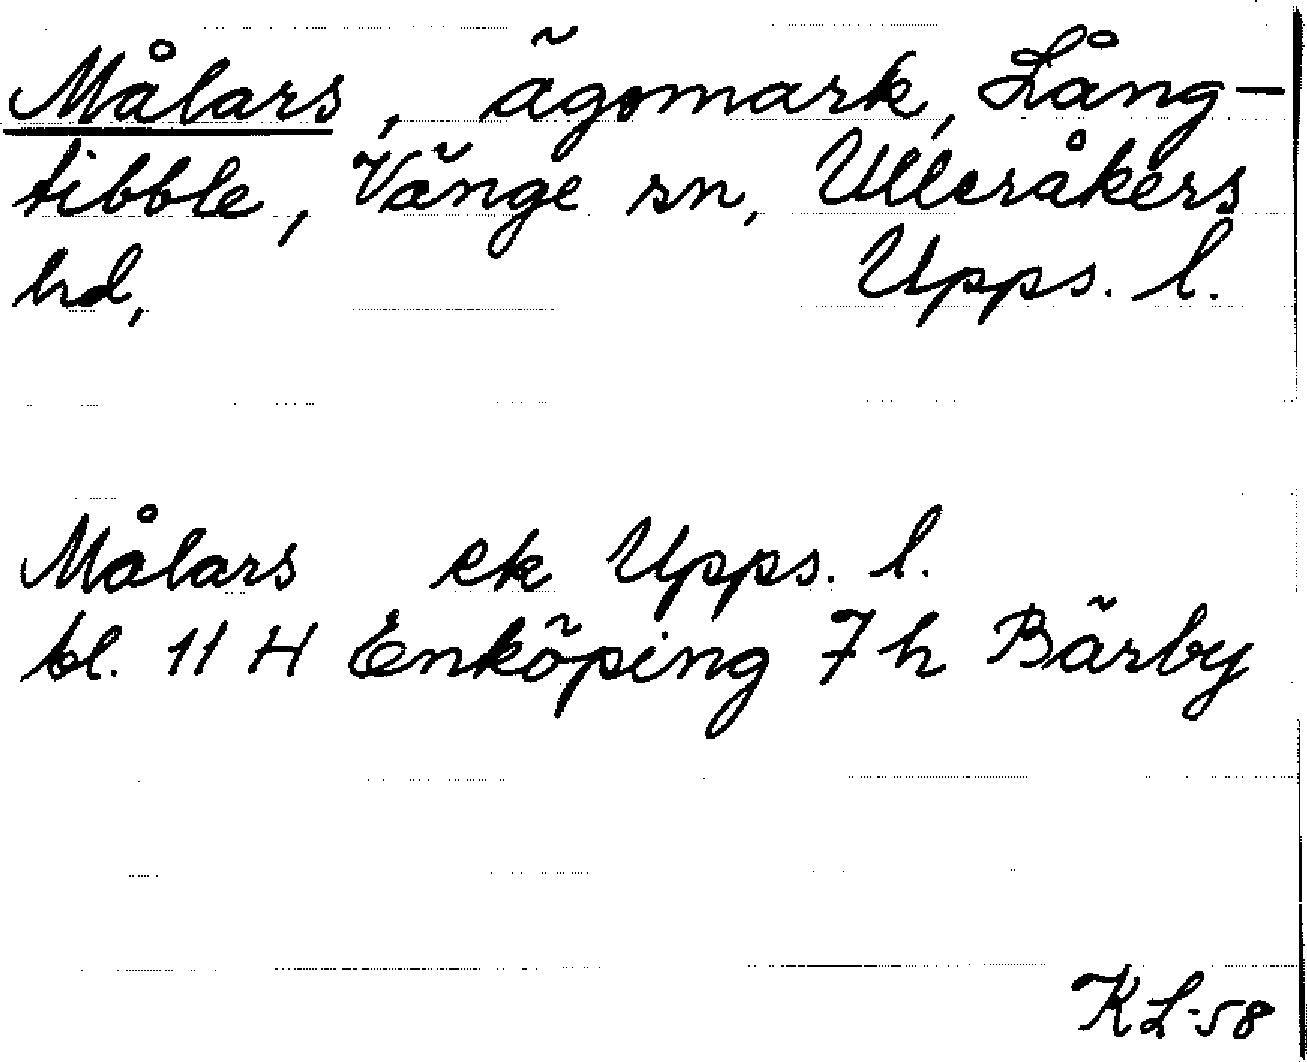 Målars, ägomark, Lång-
tibble, Vänge sn, Ulleråkers
hd, Upps. l.
Målars ek Upps. l.
bl. 11 H Enköping 7 h Bärby
KL-58